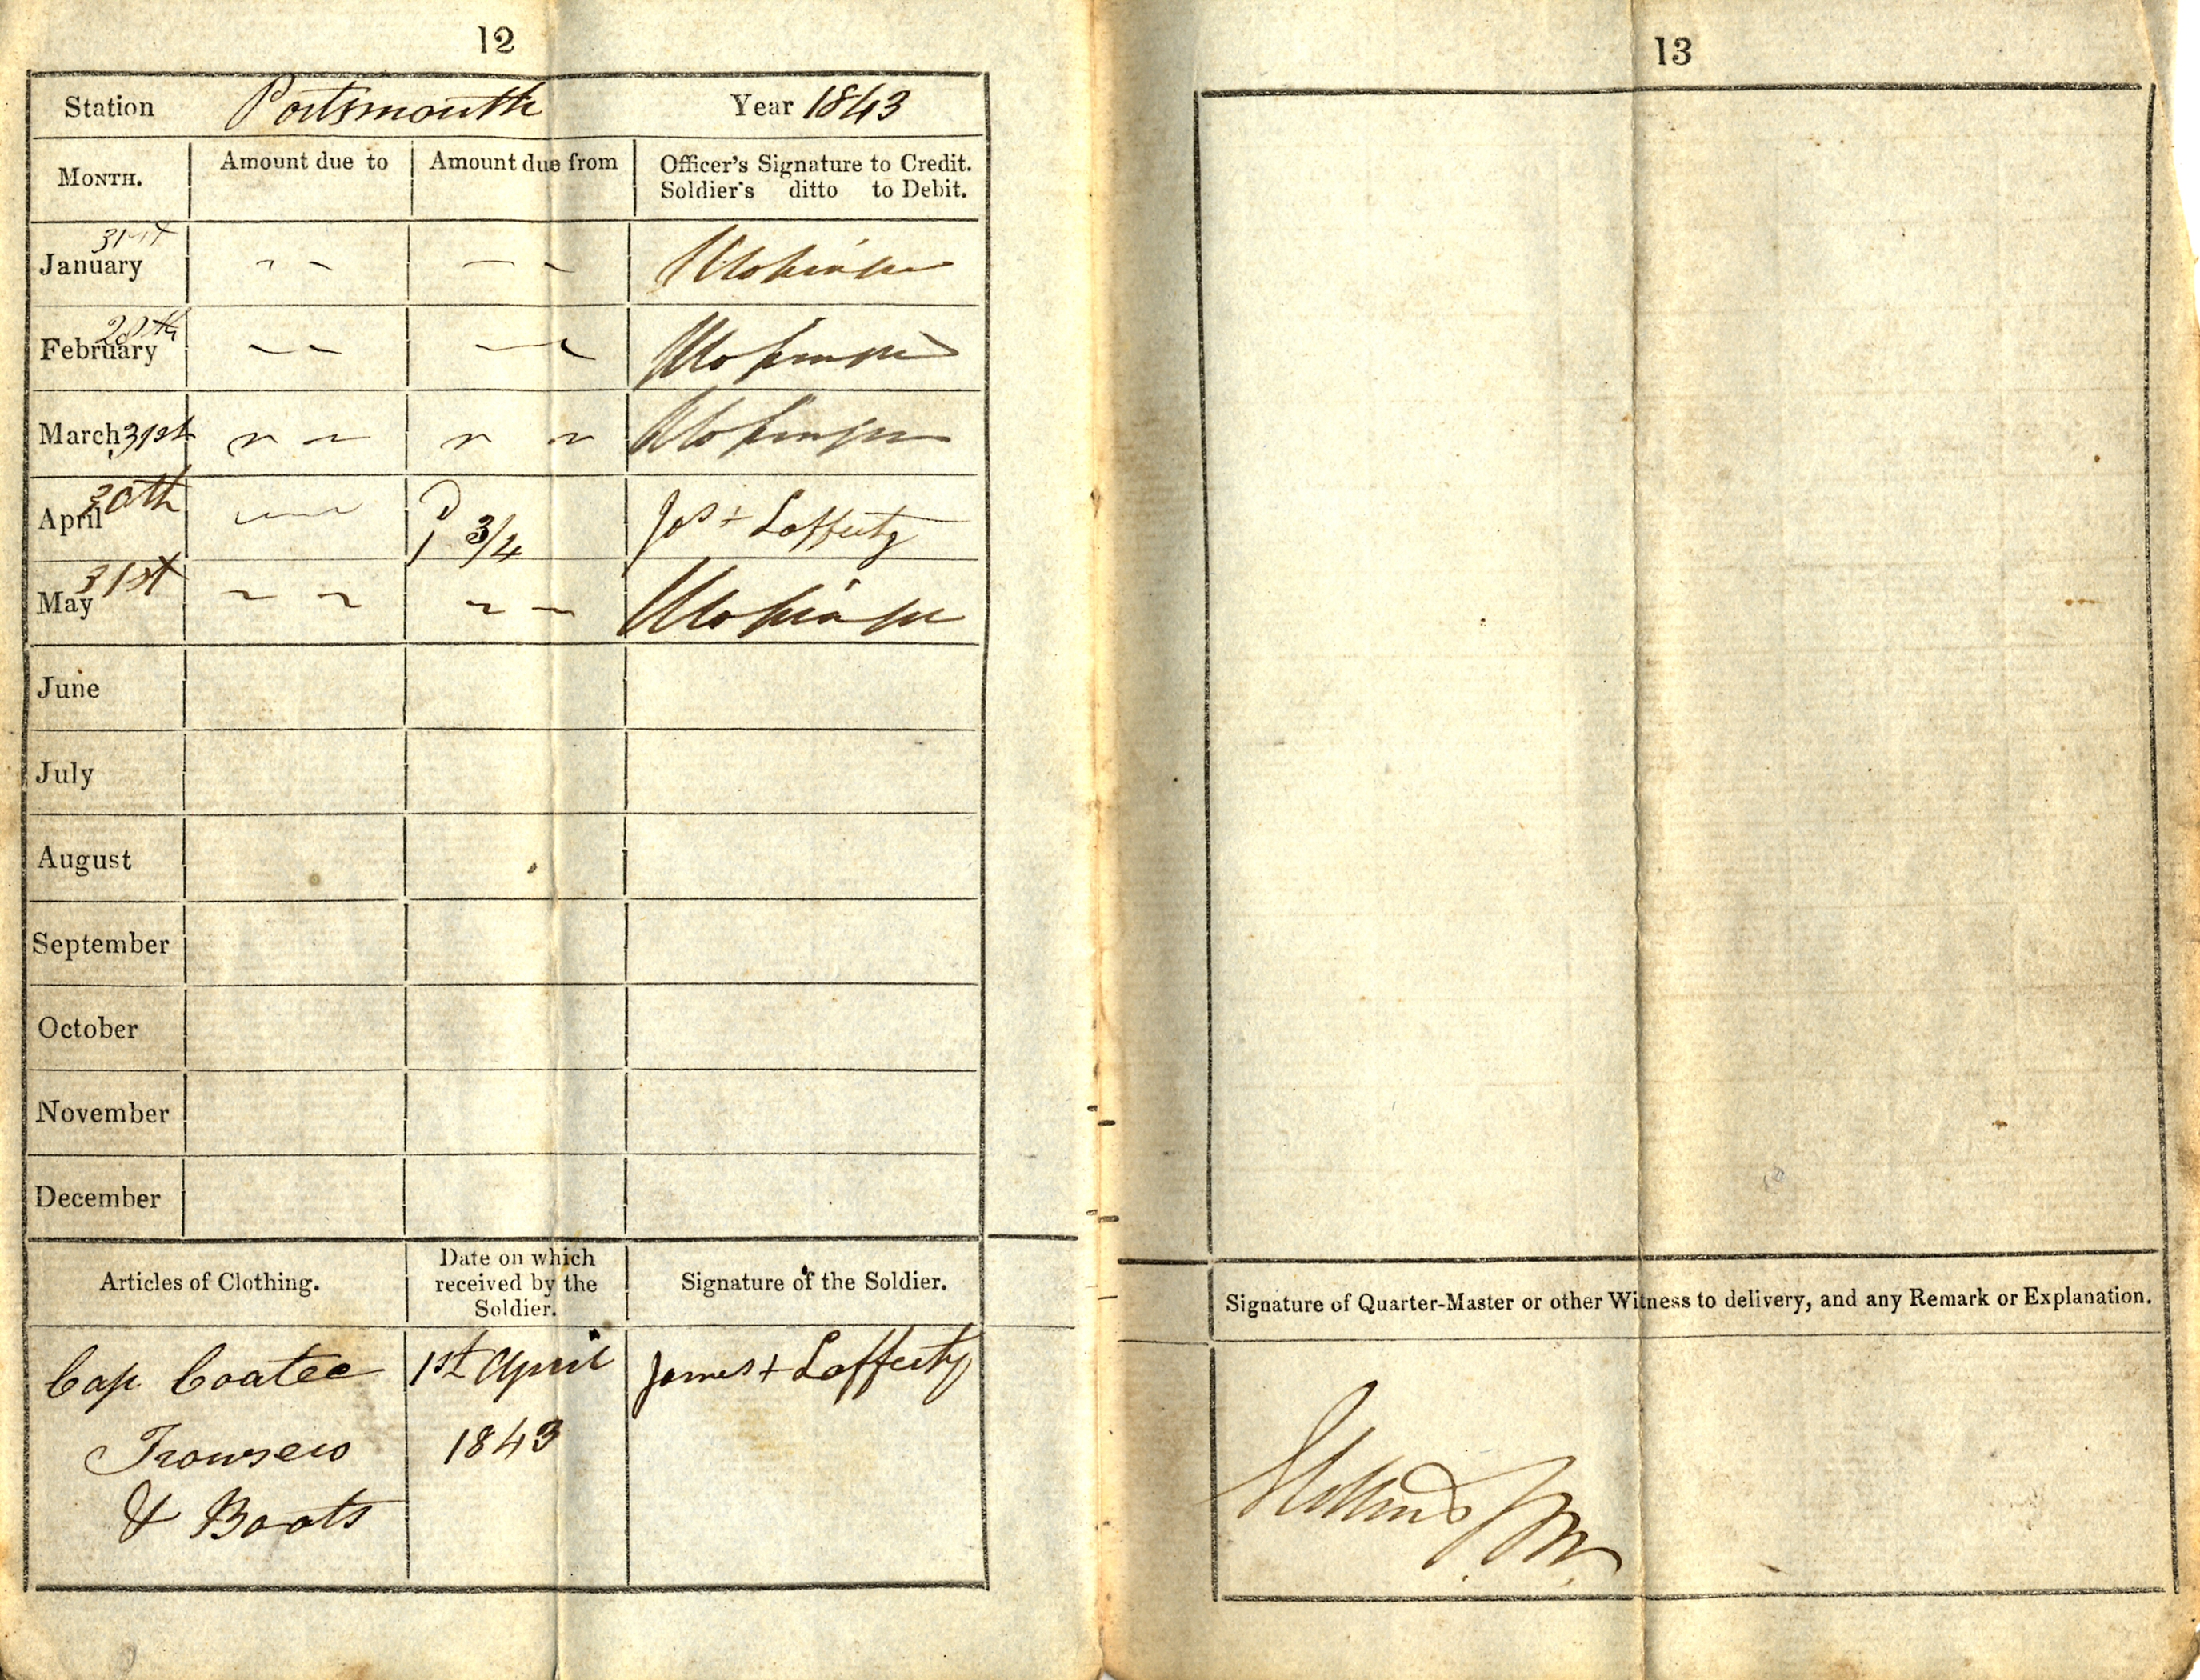 12
Station Portsmouth Year 1843
MONTH. Amount due to Amount due from Officer's Signature to Credit.
Soldier's ditto to Debit.
January 31st
February 28th
March 31st
April 30th 1 3/4 Jas + Lafferty
May 31st
June
July
August
September
October
November
December
Articles of Clothing. Date on which received by the Soldier. Signature of the Soldier.
Cap Coatee 1st April James + Lafferty
Trowsers 1843
& Boots
13
Signature of Quarter-Master or other Witness to delivery, and any Remark or Explanation.